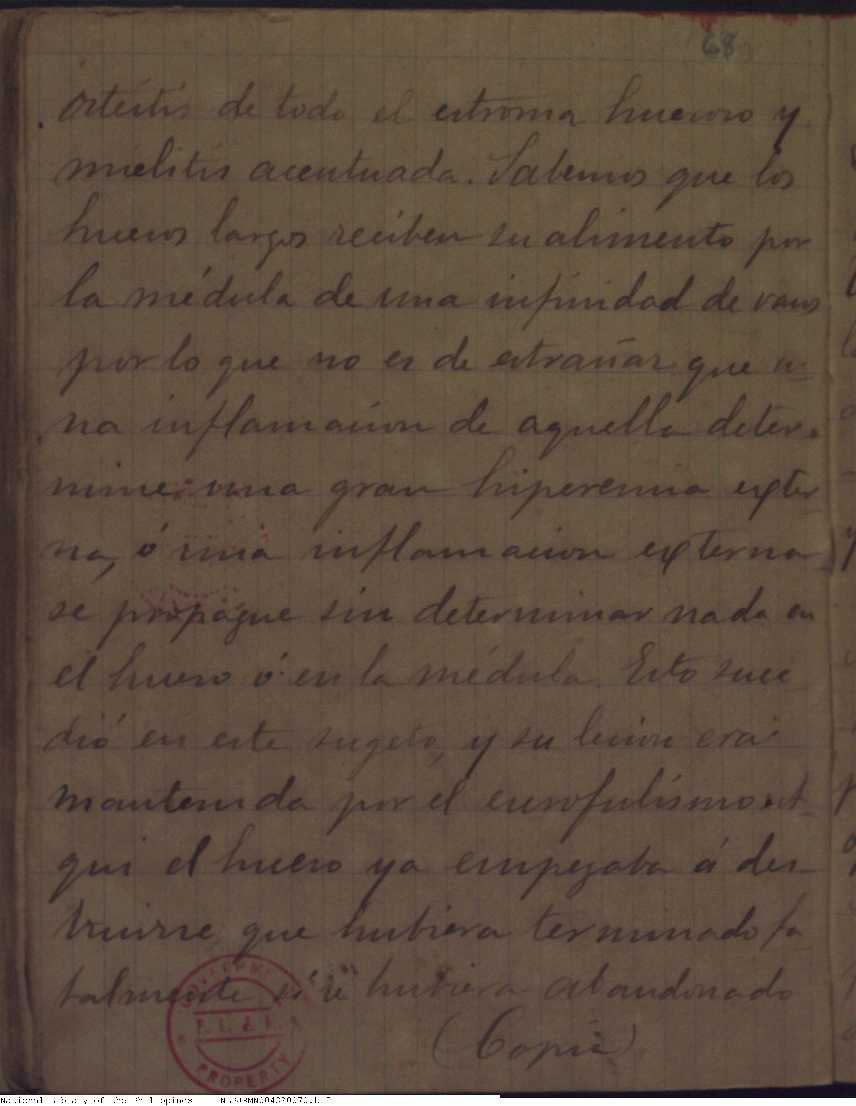 68
osteitis de todo el estroma huesoso y
mielitis acentuada. Sabemos que los
huesos largos reciben su alimento por
la médula de una infinidad de vasos
por lo que no es de estrañar que u-
na inflamacion de aquella deter-
mine una gran hiperemia exter
na, ó una inflamacion externa
se propague sin determinar nada en
el hueso ó en la médula. Esto suce
dió en este sugeto, y su lesion era
mantenida por el escrofulismo. A-
qui el hueso ya empezaba á des-
truirse, que hubiera terminado fa
talmente si se hubiera abandonado
(Copié)
GOVERNMENT
P.L. & M.
PROPERTY
National Library of the Philippines